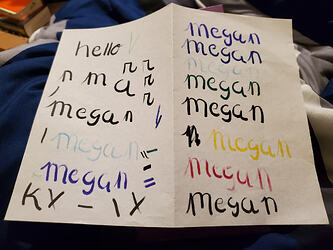 hello
n m a r r
r
megan
megan
megan
KY - IX
megan
megan
megan
megan
megan
n megan
megan
megan